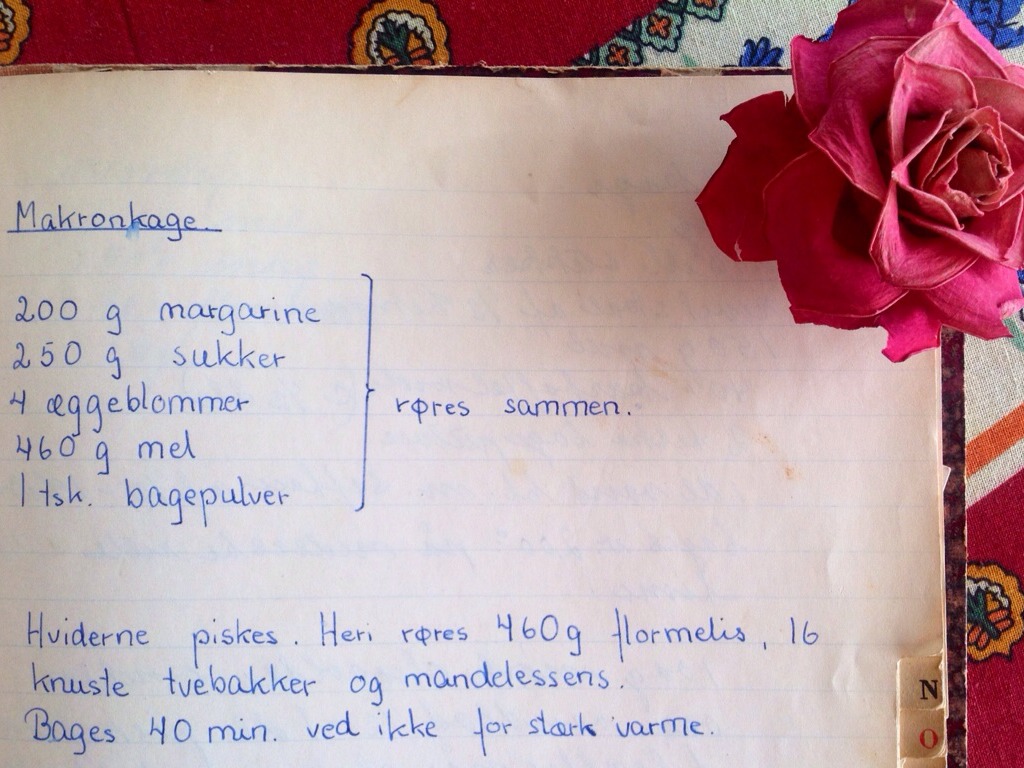 Makronkage.
200 g margarine
250 g sukker
4 æggeblommer røres sammen.
460 g mel
1 tsk. bagepulver
Hviderne piskes. Heri røres 460g flormelis, 16
knuste tvebakker og mandelessens.
Bages 40 min. ved ikke for stærk varme.
N
O